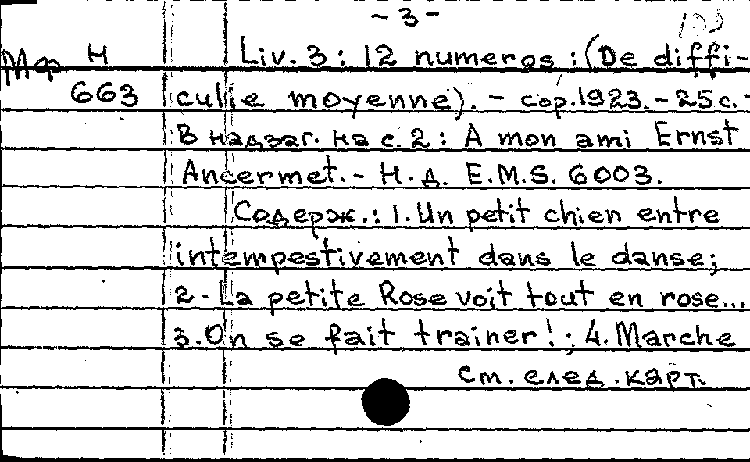 - 3 -
Мф Н Liv. 3 : 12 numeros : (De diffi-
663 culie moyenne). - cop. 1923. - 25 с. -
В надзаг. на с. 2 : A mon ami Ernst
Ancermet. - Н. д. E.M.S. 6003.
Содерж.: 1. Un petit chien entre
intempestivement dans le danse;
2. La petite Rose voit tout en rose...
3. On se fait trainer!; 4. Marche
См. след. карт.